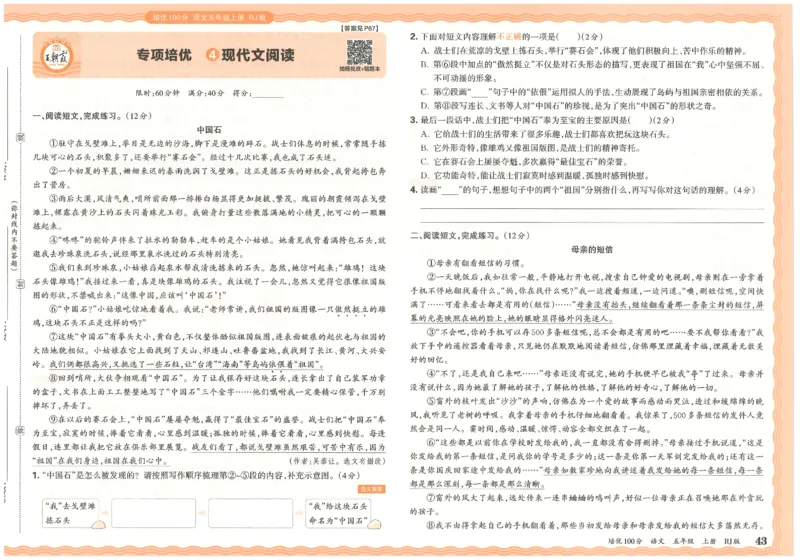 培优100分 语文五年级上册 RJ版
【答案见P87】
王朝霞
专项培优 4 现代文阅读
拍照批改+错题本
限时:60分钟 满分:40分 得分:
一、阅读短文,完成练习。(12分)
中国石
①驻守在戈壁滩上,举目是无边的沙海,脚下是漫滩的碎石。战士们休息的时候,常常随手拣
几块可心的石头,积数多了,还要举行“赛石会”。经过十几次比赛,我也成了石头迷。
②一个初夏的早晨,姗姗来迟的春雨洗润了戈壁滩。这正是拣石头的好机会,我背起挎包奔
出了营房。
③雨后天漠,风清气爽,哨所前面那一排柳白杨显得更加挺拔,繁茂。瑰丽的朝霞倾泻在戈壁
滩上,裸露在黄沙上的石头闪着珠光玉彩。我俯身打量这些散落满地的小精灵,把可心的一颗颗
拣起来。
④“咚咚”的驼铃声伴来了拉水的勒勒车,赶车的是个小姑娘。她看见我背着满挎包石头,就
邀我去珍珠泉洗石头,说经那里泉水洗过的石头特别清亮。
⑤我们来到珍珠泉,小姑娘舀起泉水帮我清洗拣来的石头。忽然,她惊叫起来:“雄鸡!这块
石头像雄鸡!”我接过来一看,真是块像雄鸡的石头。我注视了一会儿,忽然又觉得它很像祖国版
图的形状,不禁喊出来:“这像中国,应该叫‘中国石’!”
⑥“中国石?”小姑娘吃惊地看着我。我说:“老师常讲,我们祖国的版图像一只傲然挺立的雄
鸡,这块石头不正是这样的吗?”
⑦这块“中国石”有拳头大小,黄白色,不仅整体酷似祖国版图,连表面皱痕的起伏也与祖国的
大陆地貌相似。小姑娘在它上面找到了天山、祁连山、吐鲁番盆地,我找到了长江、黄河、大兴安
岭。我们俩都很高兴,又挑选了一些石粒,让“台湾”“海南”等岛屿依偎着“祖国”。
⑧回到哨所,大伙争相观看“中国石”。为了让我保存好这块石头,连长拿出了自己装军功章
的盒子,文书在上面工工整整地写了“中国石”三个金字……他们嘱咐我一定要精心保管,千万别
摔坏了,弄丢了。
⑨在以后的赛石会上,“中国石”屡屡夺魁,赢得了“最佳宝石”的盛誉。战士们把“中国石”奉
为至宝,寂寞的时候,捧着它看看,心里感到温暖;孤独的时候,捧着它看看,心里感到快慰。每逢
假日,连里都让我把它放在俱乐部里展览。战友们看了,都说戈壁滩虽然艰苦,可苦中有乐,因为
“祖国”在我们身边,祖国在我们心中。 (作者:吴泰让。选文有删改)
1. “中国石”是怎么被发现的?请按照写作顺序梳理第②~⑤段的内容,补充示意图。(4分)
语文要素
“我”去戈壁滩
拣石头
“我”给这块石头
命名为“中国石”
(密封线内不要答题)
密
封
线
2. 下面对短文内容理解不正确的一项是( )(2分)
A. 战士们在荒凉的戈壁上拣石头,举行“赛石会”,体现了他们积极向上、苦中作乐的精神。
B. 第⑥段中加点的“傲然挺立”不仅是对石头形态的描写,更表现了祖国在“我”心中坚强不屈、
不可动摇的形象。
C. 第⑦段画“ ”句子中的“依偎”运用拟人的手法,生动展现了岛屿与祖国亲密相依的关系。
D. 第⑧段写连长、文书等人对“中国石”的珍视,是为了突出“中国石”的形状之奇。
3. 最后一段话中,战士们把“中国石”奉为至宝的主要原因是( )(2分)
A. 它给战士们的生活带来了很多乐趣,战士们都喜欢把玩这块石头。
B. 它外形奇特,像雄鸡又像祖国版图,是战士们的精神寄托。
C. 它在赛石会上屡屡夺魁,多次赢得“最佳宝石”的荣誉。
D. 它功能奇特,能让战士们寂寞时感到温暖、孤独时感到快慰。
4. 读画“ ”的句子,想想句子中的两个“祖国”分别指什么,再写写你对这句话的理解。(4分)
二、阅读短文,完成练习。(12分)
母亲的短信
①母亲有翻看短信的习惯。
②一天晚饭后,我如往常一般,平静地打开电视,搜索自己钟爱的电视剧,母亲则在一旁拿着
手机不停地翻找着什么。“妈,你在找什么呢?”我一边搜着频道,一边问道。“噢,删短信呢,空间快
满了……可看来看去都是有用的(短信)……”母亲没有抬头,继续翻看着那一条条尘封的短信,屏
幕的光亮映照在她的脸上,她的眼睛显得格外闪亮迷人。
③“不会吧,你的手机可以存500多条短信呢,总不会都是有用的吧……要不我帮你看看?”我
放下手中的遥控器看着母亲,只见她仍在默默地阅读着短信,仿佛那里埋藏着幸福,埋藏着无数美
好的回忆。
④“不了,还是我自己来吧……”母亲还没有说完,她的手机便早已被我“夺”了过来。母亲并
没有说什么,因为她最了解她的孩子,了解他的性格,了解他的好奇心,了解他的一切。
⑤窗外的枝叶发出“沙沙”的声响,仿佛在为一个爱的故事而感动而哭泣,透过和缓绵绵的晚
风,我听见了老树的呼吸。我拿着母亲的手机仔细地翻看着。我惊呆了,500多条短信的发件人竟
然会是同一人。霎时间,感动、温暖、惊愕、动容全都交织在了一起。
⑥“这些都是以前你在学校时发给我的,我一直都没有舍得删掉。”母亲接过手机说道,“这是
你发给我的第一条短信,是问我你的学号是多少的;这一条是你第一天军训完发给我的;还有这一
条是你国庆回家途中发给我的……”母亲如数家珍地向我讲述着我发给她的每一条短信,每一条
都是那么深刻,每一条都是那么清晰。
⑦窗外的风大了起来,远处传来一连串蛐蛐的鸣叫声,好似一位母亲正在召唤她那在外贪玩
的孩子。
⑧我不由得拿起自己的手机翻看着,那些当初发给母亲和母亲发给我的短信大多荡然无存。
培优100分 语文 五年级 上册 RJ版 43